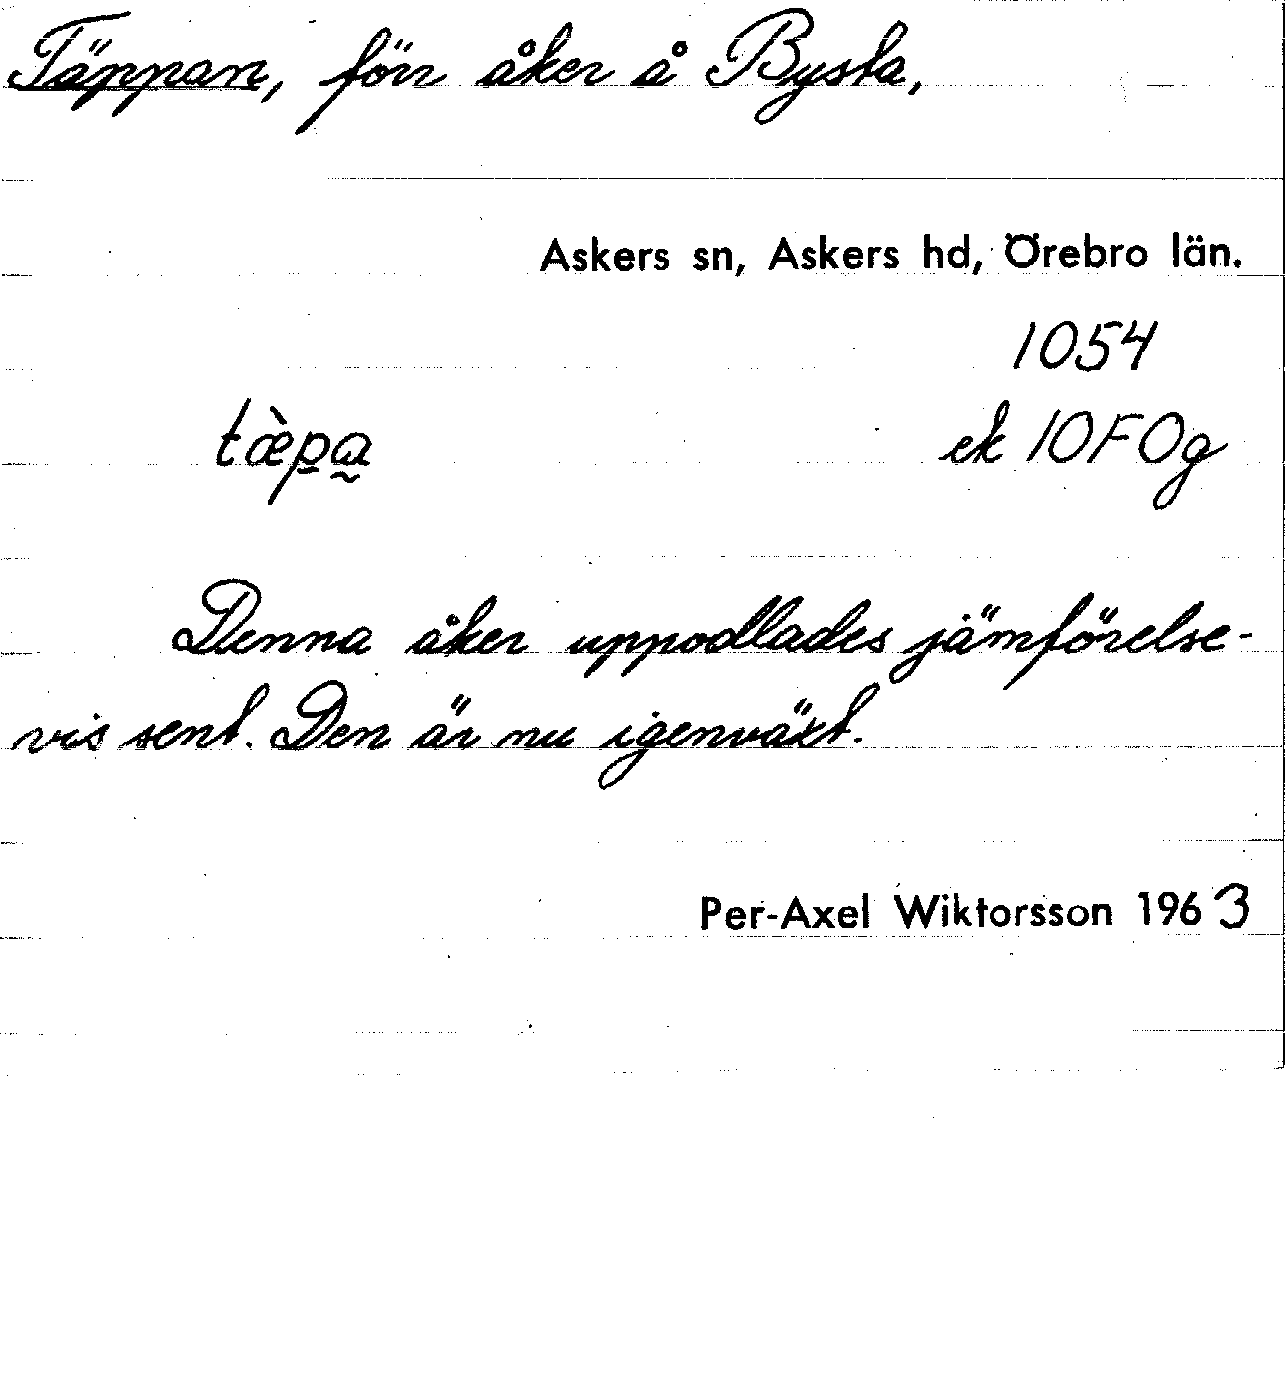 Täppan, förr åker å Bysta,
Askers sn, Askers hd, Örebro län.
1054
tæ̀pa̰ ek 10F0g
Denna åker uppodlades jämförelse-
vis sent. Den är nu igenväxt.
Per-Axel Wiktorsson 1963